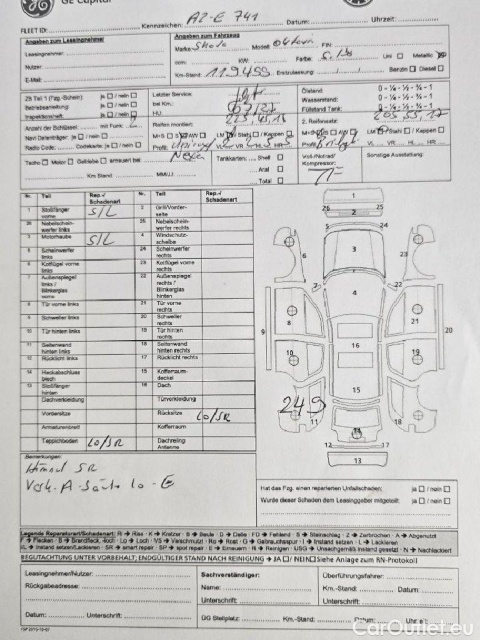 GE Capital
FLEET ID: Kennzeichen: AZ-E 741 Datum: Uhrzeit:
Angaben zum Leasingnehmer
Leasingnehmer:
Nutzer:
E-Mail:
Angaben zum Fahrzeug
Marke: Skoda Modell: Oktavia FIN
ccm: KW: Farbe: Uni Metallic
Km-Stand: 119455 Erstzulassung: Benzin Diesel
ZB Teil 1 (Fzg.-Schein): ja / nein
Betriebsanleitung: ja / nein
Inspektionsheft: ja / nein
Anzahl der Schlüssel: mit Funk:
Navi Datenträger: ja / nein
Radio Code: Codekarte: ja / nein
Letzter Service:
bei Km.:
Reifen montiert:
M+S
Profil:
Ölstand 0 - ¼ - ½ - ¾ - 1
Wasserstand: 0 - ¼ - ½ - ¾ - 1
Füllstand Tank: 0 - ¼ - ½ - ¾ - 1
2. Reifensatz: 205.55.17
M+S LM Stahl / Kappen
Profil: VL VR HL HR
Tacho Motor Getriebe erneuert bei:
Km Stand: MM/JJ
Tankkarten: Shell
Aral
Total
Voll-/Notrad/
Kompressor:
Sonstige Ausstattung:
Nr. Teil Rep.-/ Schadenart Nr. Teil Rep.-/ Schadenart
1 Stoßfänger vorne S/L 2 Grill/Vorder-seite
26 Nebelschein-werfer links 25 Nebelschein-werfer rechts
3 Motorhaube S/L 4 Windschutz-scheibe
5 Scheinwerfer links 24 Scheinwerfer rechts
6 Kotflügel vorne links 23 Kotflügel vorne rechts
7 Außenspiegel links / Blinkerglas vorne 22 Außenspiegel rechts / Blinkerglas hinten
8 Tür vorne links 21 Tür vorne rechts
9 Schweller links 20 Schweller rechts
10 Tür hinten links 19 Tür hinten rechts
11 Seitenwand hinten links 18 Seitenwand hinten rechts
12 Rücklicht links 17 Rücklicht rechts
14 Heckabschluss blech 15 Kofferraum-deckel
13 Stoßfänger hinten 16 Dach
Dachverkleidung Türverkleidung
Vordersitze Rücksitze Lo/SR
Armaturenbrett Kofferraum
Teppichboden Lo/SR Dachreling Antenne
1
2
5 24
6 3 23
7 4 22
8 21
9 16 20
10 19
15
249
11 18
14
12 17
13
Bemerkungen:
Himmel SR
Hat das Fzg. einen reparierten Unfallschaden: ja / nein
Wurde dieser Schaden dem Leasinggeber mitgeteilt: ja / nein
Legende Reparaturart/Schadenart: Ri → Riss - K → Kratzer - B → Beule - D → Delle - FD → Fehlend - S → Steinschlag - Z → Zerbrochen - A → Abgenutzt
F → Flecken - B → Brandfleck, -loch - Lo → Loch - VS → Verschmutzt - Ro → Rost - G → Gebrauchsspur - I → Instand setzen - L → Lackieren
I/L → Instand setzen/Lackieren - SR → smart repair - SP → spot repair - E → Erneuern - R → Reinigen - USG → Unsachgemäß instand gesetzt - N → Nachlackiert
BEGUTACHTUNG UNTER VORBEHALT; ENDGÜLTIGER STAND NACH REINIGUNG → JA / NEIN Siehe Anlage zum RN-Protokoll
Leasingnehmer/Nutzer:
Rückgabeadresse:
Datum: Unterschrift:
Sachverständiger:
Name:
Unterschrift:
GG Stellplatz:
Überführungsfahrer:
Name:
Unterschrift:
Km.-Stand: Datum:
CarOutlet.eu